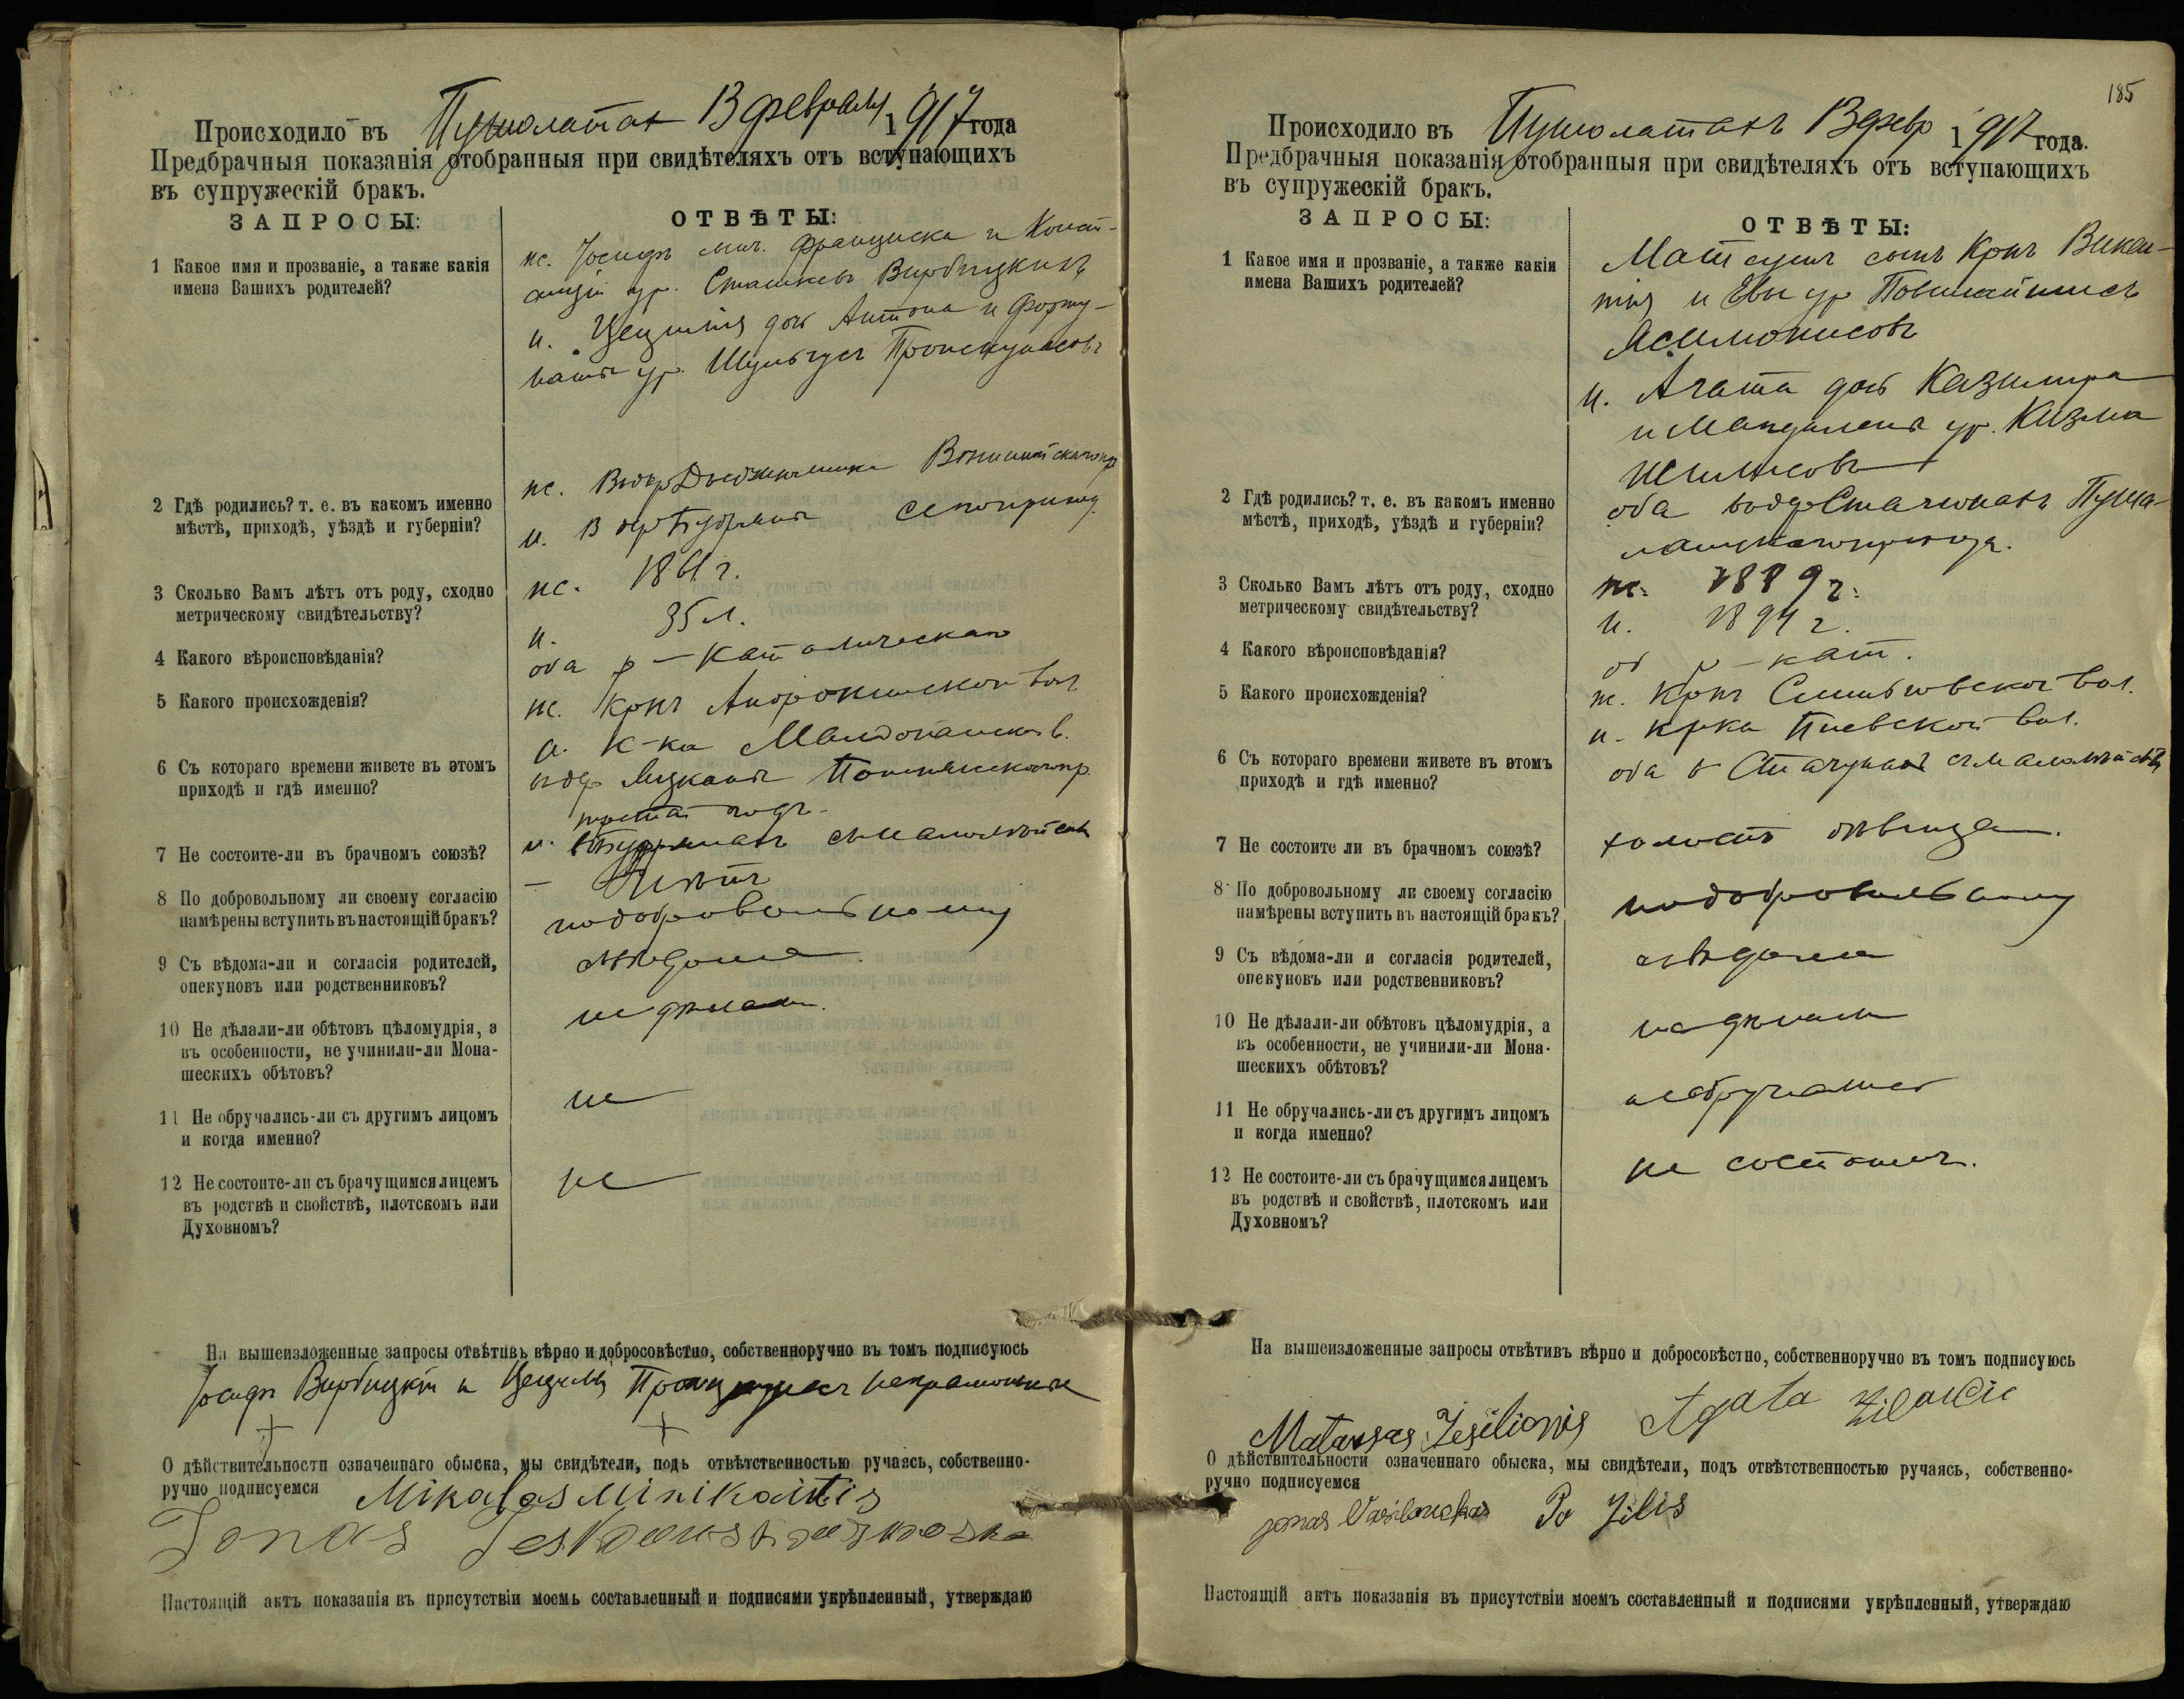 Происходило въ Пушолатах 13 февраля 1917 года
Предбрачныя показанія отобранныя при свидѣтеляхъ отъ вступающихъ
въ супружескій бракъ.
ЗАПРОСЫ:
ОТВѢТЫ:
1 Какое имя и прозваніе, а также какія
имена Вашихъ родителей?
ж. Іосифъ Франциска и Конст-
анціи ур. Вирбицкихъ
н. Цецилія дочь Антона и Форту-
наты ур.
2 Гдѣ родились? т. е. въ какомъ именно
мѣстѣ, приходѣ, уѣздѣ и губерніи?
ж.
н. В сего прихода
3 Сколько Вамъ лѣтъ отъ роду, сходно
метрическому свидѣтельству?
ж. 1861 г.
н. 35 л.
4 Какого вѣроисповѣданія?
оба р-католическаго
5 Какого происхожденія?
ж. Крнъ вол
н. к-ка в.
6 Съ котораго времени живете въ этомъ
приходѣ и гдѣ именно?
третій годъ.
н. съ малолѣтства
7 Не состоите-ли въ брачномъ союзѣ?
— Нѣтъ
8 По добровольному ли своему согласію
намѣрены вступить въ настоящій бракъ?
подобровольному
9 Съ вѣдома-ли и согласія родителей,
опекуновъ или родственниковъ?
съ вѣдома.
10 Не дѣлали-ли обѣтовъ цѣломудрія, а
въ особенности, не учинили-ли Мона-
шескихъ обѣтовъ?
не дѣлали.
11 Не обручались-ли съ другимъ лицомъ
и когда именно?
не
12 Не состоите-ли съ брачущимся лицемъ
въ родствѣ и свойствѣ, плотскомъ или
Духовномъ?
не
На вышеизложенные запросы отвѣтивъ вѣрно и добросовѣстно, собственноручно въ томъ подписуюсь
Іосифъ Вирбицкій и Цецилія неграмотные
+ +
О дѣйствительности означеннаго обыска, мы свидѣтели, подъ отвѣтственностью ручаясь, собственно-
ручно подписуемся Mikalas Minikaitis
Jonas
Настоящій актъ показанія въ присутствіи моемъ составленный и подписями укрѣпленный, утверждаю
185
Происходило въ Пушолатахъ 13 февр 1917 года.
Предбрачныя показанія отобранныя при свидѣтеляхъ отъ вступающихъ
въ супружескій бракъ.
ЗАПРОСЫ:
ОТВѢТЫ:
1 Какое имя и прозваніе, а также какія
имена Вашихъ родителей?
сынъ Крнъ Викен-
тія и Евы ур
н. Агата дочь Казимира
и Магдалены ур. Кизма
2 Гдѣ родились? т. е. въ какомъ именно
мѣстѣ, приходѣ, уѣздѣ и губерніи?
оба въ дер Стачюнахъ Пушо-
латскаго прихода.
3 Сколько Вамъ лѣтъ отъ роду, сходно
метрическому свидѣтельству?
ж. 1889 г.
н. 1894 г.
4 Какого вѣроисповѣданія?
об р-кат.
5 Какого происхожденія?
ж. Крнъ вол.
н. крка вол.
6 Съ котораго времени живете въ этомъ
приходѣ и гдѣ именно?
оба в съ малолѣтств
7 Не состоите ли въ брачномъ союзѣ?
холостъ дѣвица.
8 По добровольному ли своему согласію
намѣрены вступить въ настоящій бракъ?
подобровольному
9 Съ вѣдома-ли и согласія родителей,
опекуновъ или родственниковъ?
съ вѣдома
10 Не дѣлали-ли обѣтовъ цѣломудрія, а
въ особенности, не учинили-ли Мона-
шескихъ обѣтовъ?
не дѣлали
11 Не обручались-ли съ другимъ лицомъ
и когда именно?
необручались
12 Не состоите-ли съ брачущимся лицемъ
въ родствѣ и свойствѣ, плотскомъ или
Духовномъ?
не состоимъ.
На вышеизложенные запросы отвѣтивъ вѣрно и добросовѣстно, собственноручно въ томъ подписуюсь
Matausas Agata
О дѣйствительности означеннаго обыска, мы свидѣтели, подъ отвѣтственностью ручаясь, собственно-
ручно подписуемся
Jonas Vasilauckas Po Zilis
Настоящій актъ показанія въ присутствіи моемъ составленный и подписями укрѣпленный, утверждаю